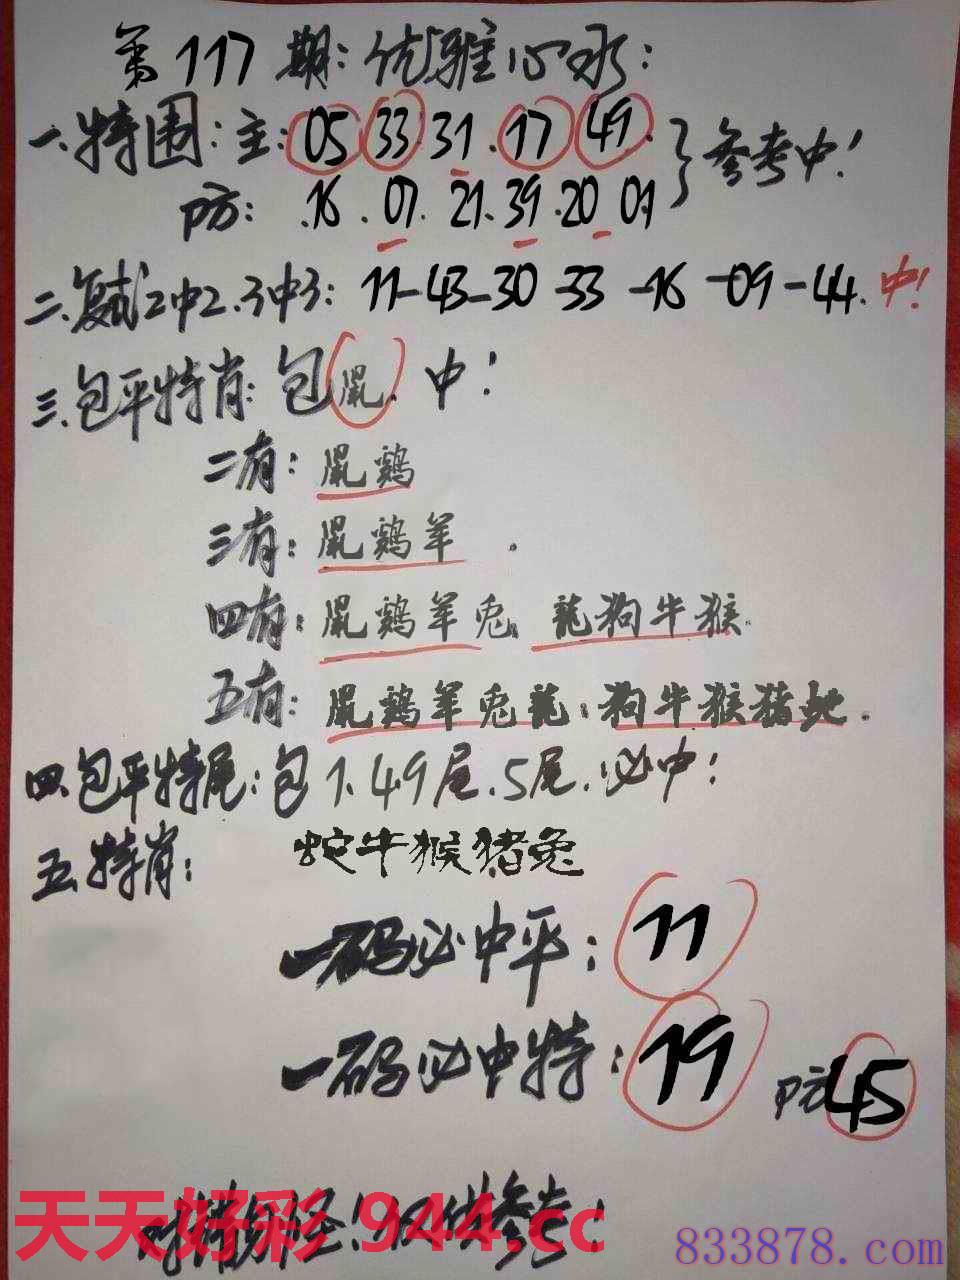 第117期:优雅心水:
一.特围:主:05 33 31.17 49.}参考中!
防:.16.07.21.39.20 01
二.复式2中2.3中3:11-43-30-33-16-09-44.中!
三.包平特肖:包鼠.中!
二有:鼠鸡
三有:鼠鸡羊.
四有:鼠鸡羊兔 龍狗牛猴.
五有:鼠鸡羊兔龍:狗牛猴猪蛇.
四.包平特尾:包1.49尾.5尾.必中!
五.特肖:蛇牛猴猪兔
一码必中平:11
一码必中特:19 防45
天天好彩 944.cc
猜 怪!仅供参考!
833878.com